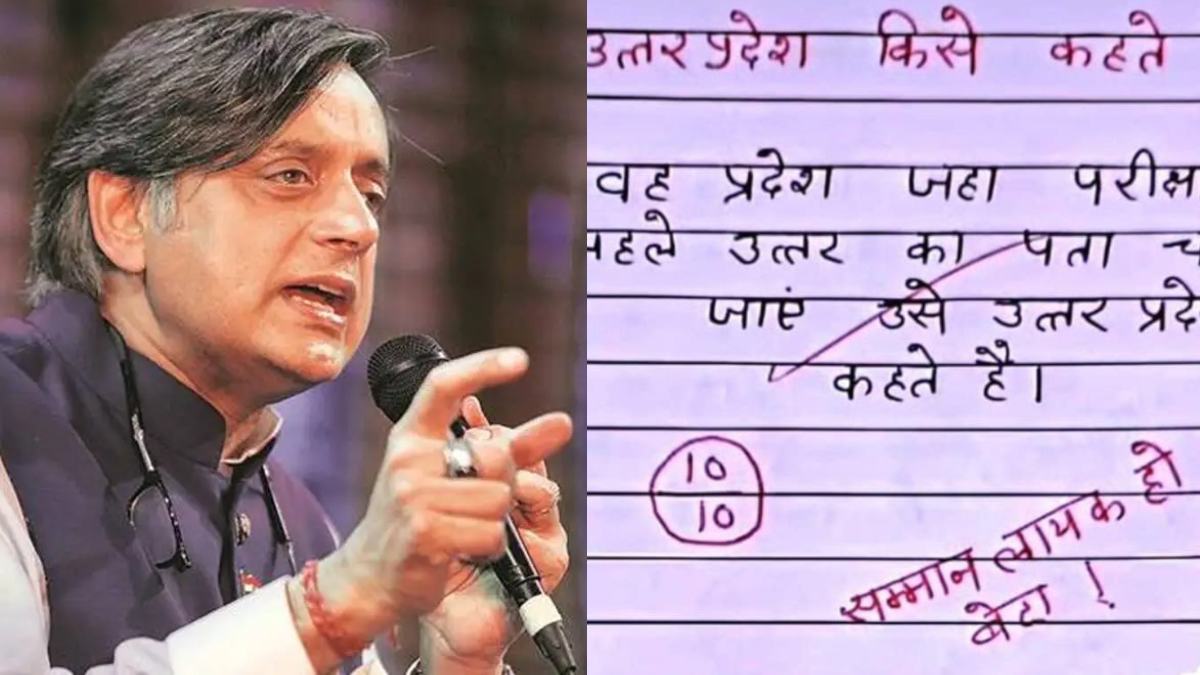 उत्तर प्रदेश किसे कहते
वह प्रदेश जहा परीक्ष
पहले उत्तर का पता च
जाएं उसे उत्तर प्रदे
कहते है।
10
10
सम्मान लायक हो
बेटा !